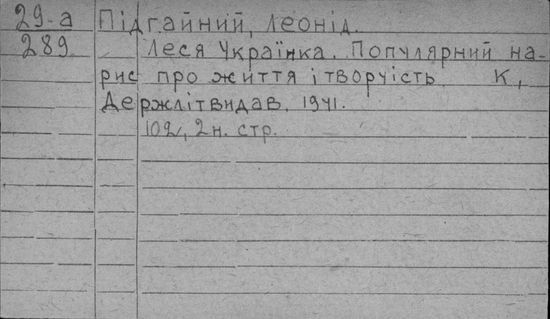 29-а Підгайний, Леонід.
289 Леся Українка. Популярний на-
рис про життя і творчість. К,
Держлітвидав, 1941.
102, 2 н. стр.